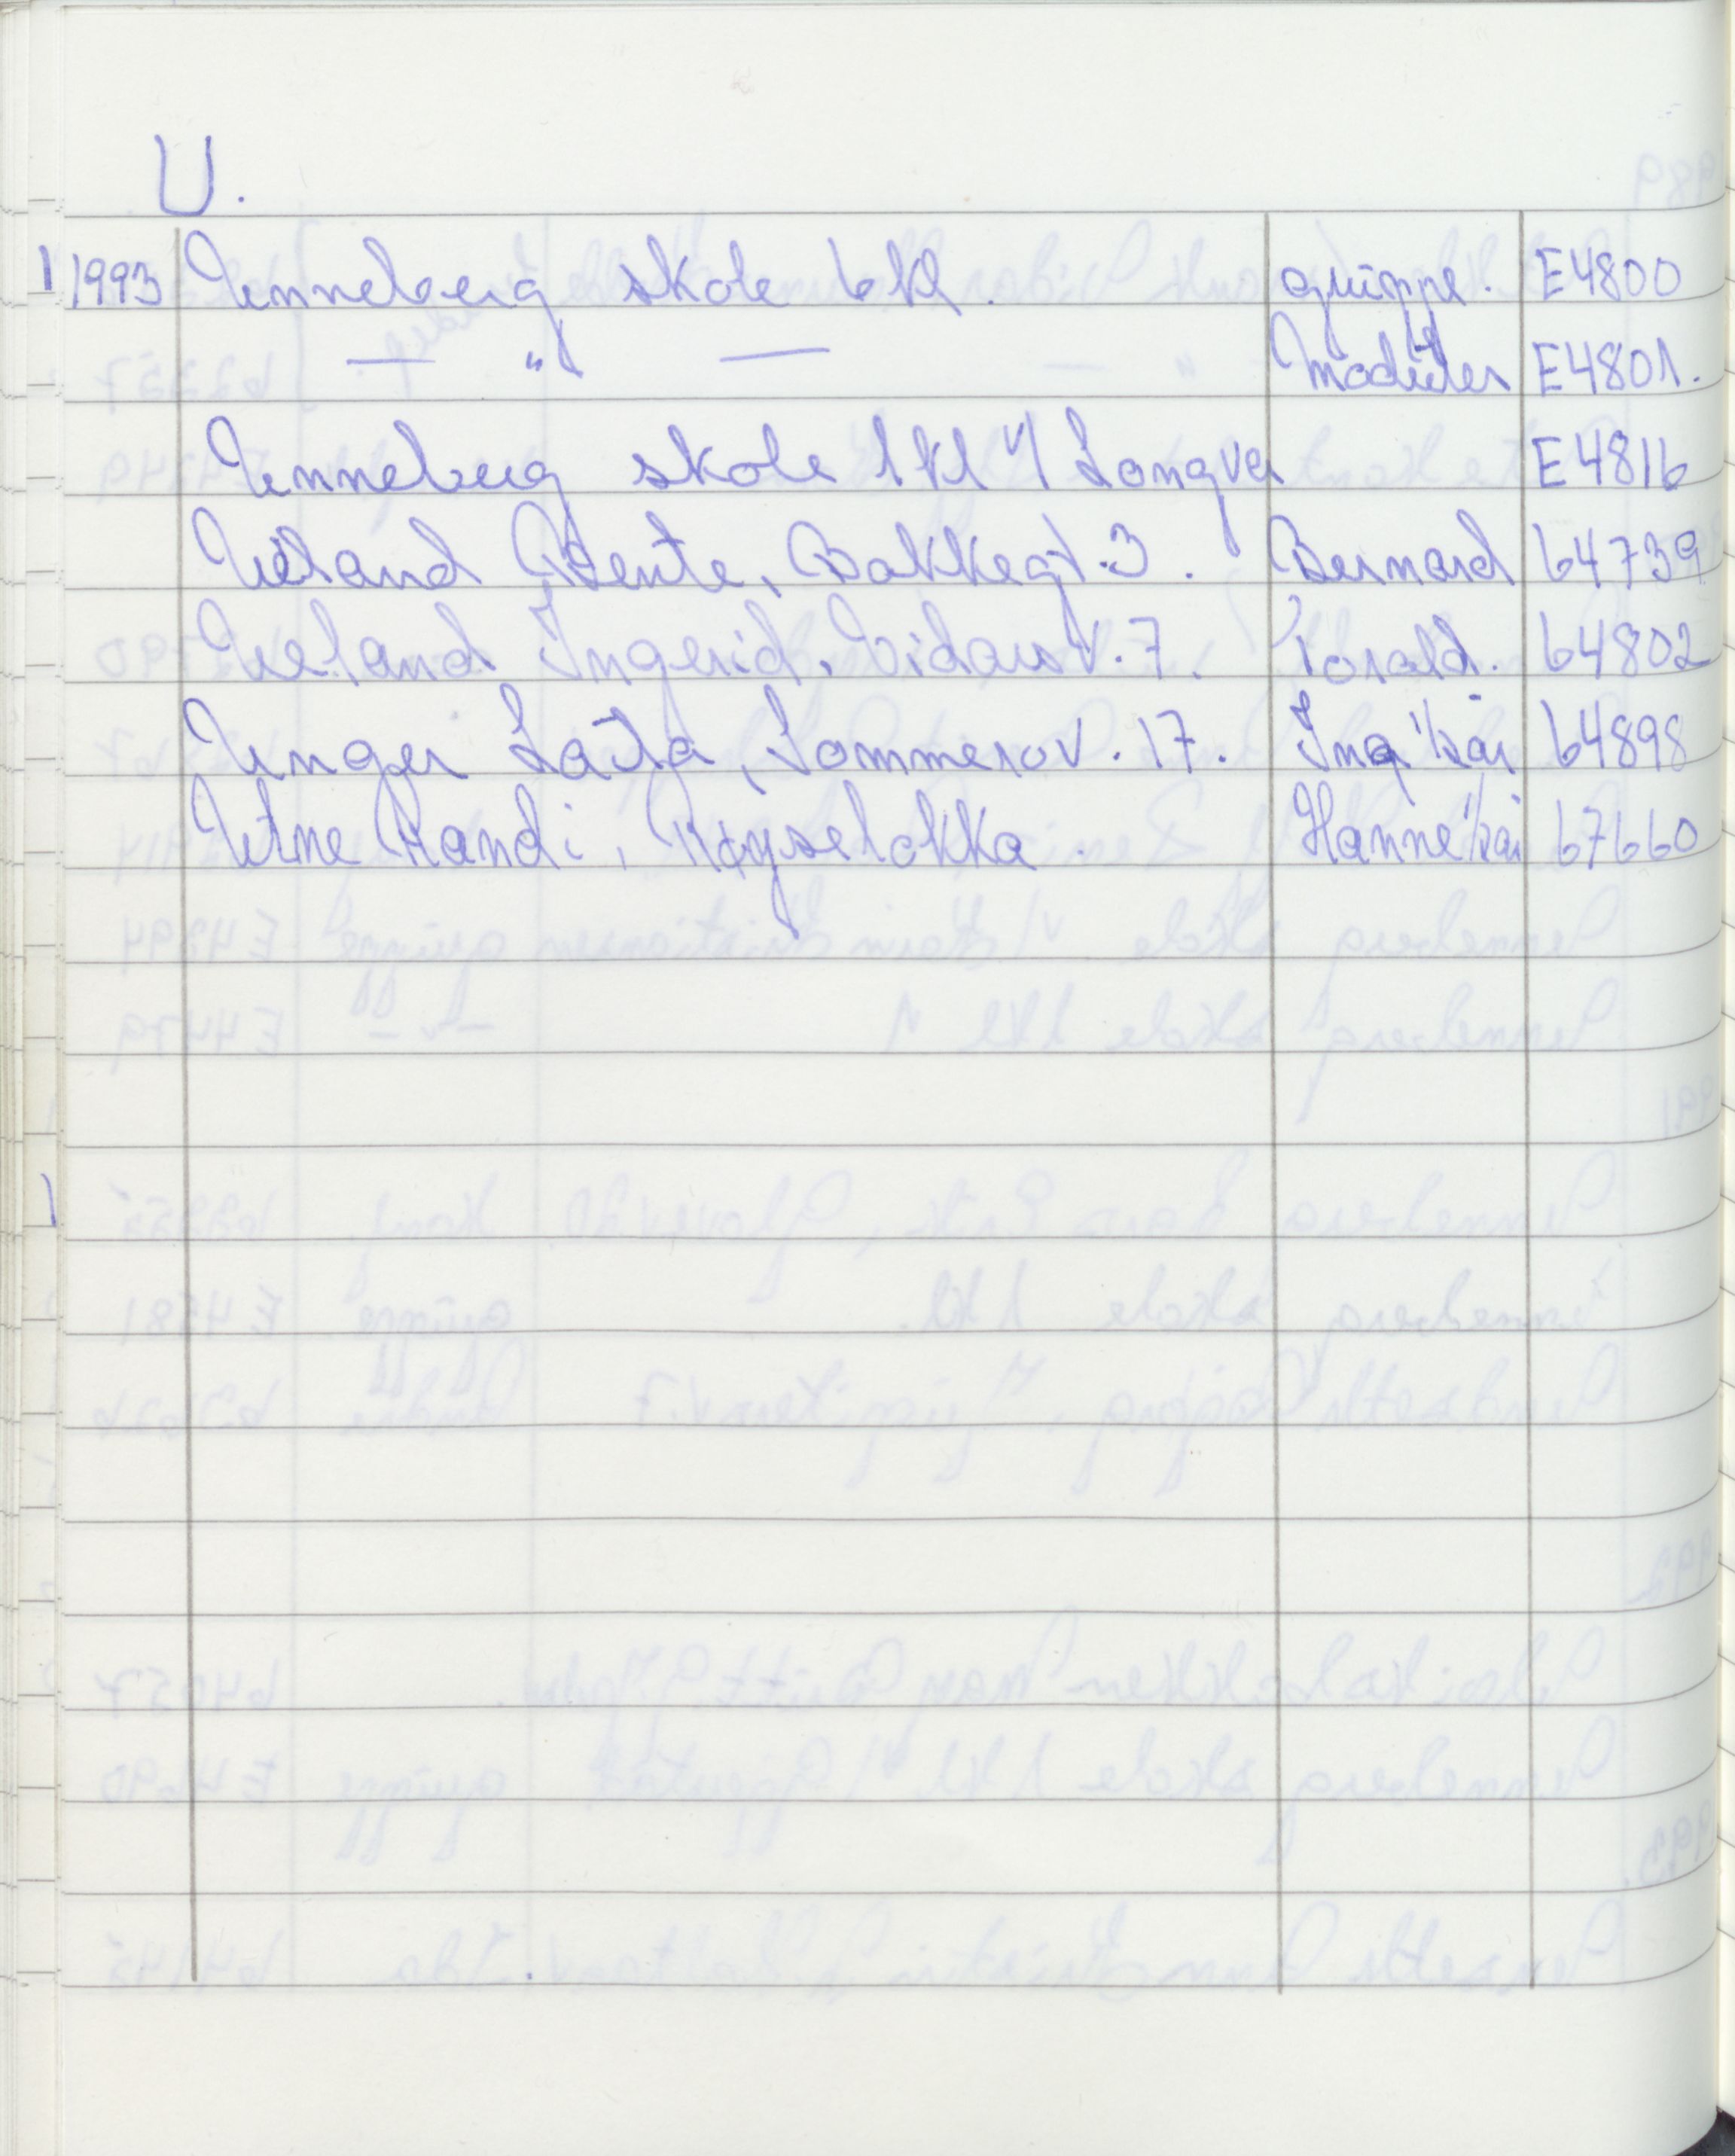 U.
1993 Unneberg skole 6 kl. gruppe. E4800
— " — Mødrer E4801.
Unneberg skole 1 kl v/ Longva E4816
Ueland Bente, Bakkegt. 3. Bernard 64739
Ueland Ingerid, Vidarsv. 7. Torald. 64802
Unger Laila, Sommerov. 17. 64898
Utne Randi, Røyseløkka. Hanne 67660